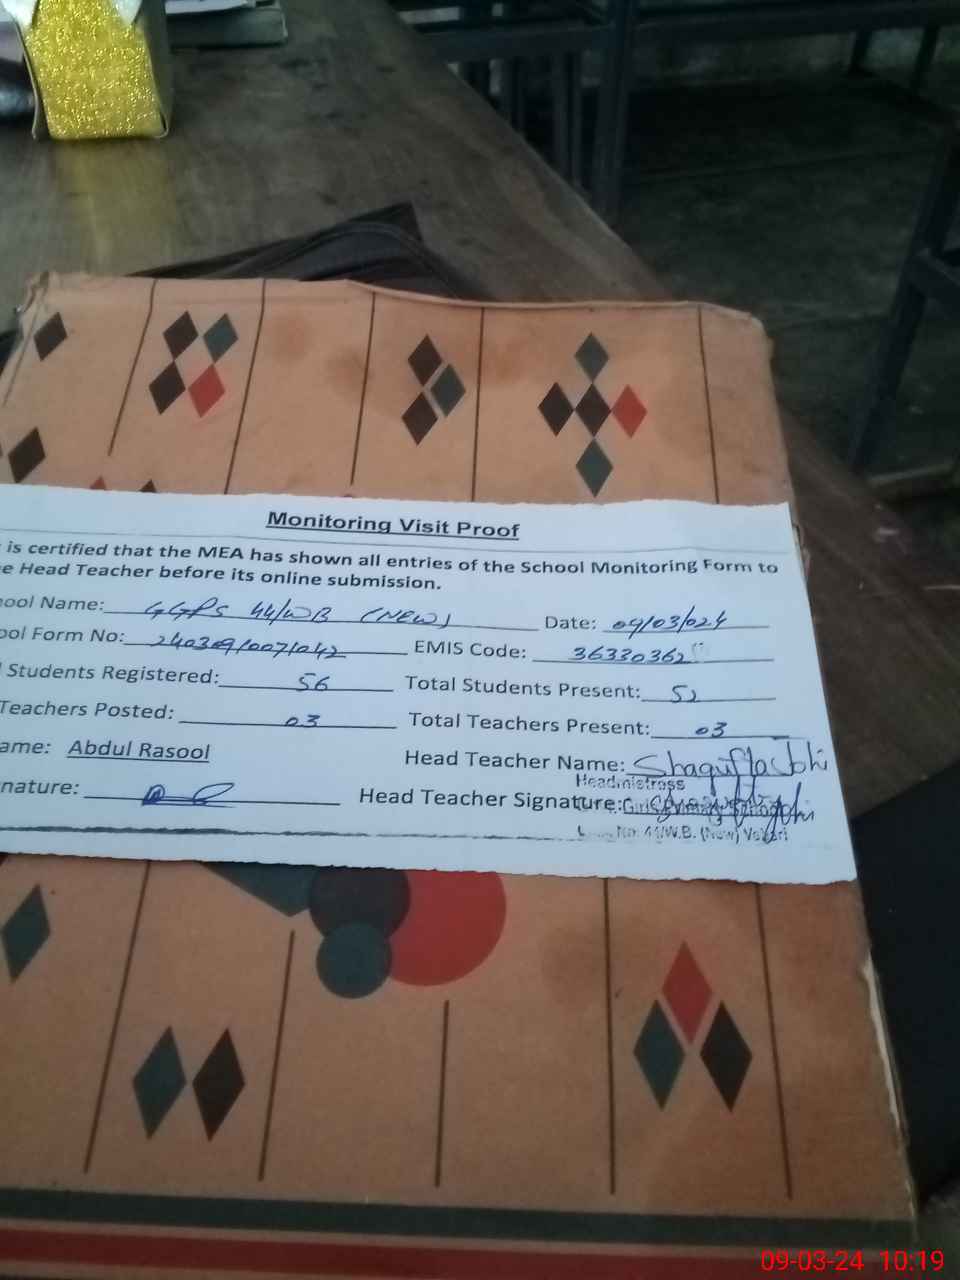 Monitoring Visit Proof
is certified that the MEA has shown all entries of the School Monitoring Form to
e Head Teacher before its online submission.
ool Name: GGPS 44/WB (NEW) Date: 09/03/024
ool Form No: 240309/007/042 EMIS Code: 36330362
Students Registered: 56 Total Students Present: 52
Teachers Posted: 03 Total Teachers Present: 03
ame: Abdul Rasool Head Teacher Name: Shagufta
Headmistress
nature: Head Teacher Signature:
Girls Primary School
No. 44/W.B. (New) Vehari
09-03-24 10:19